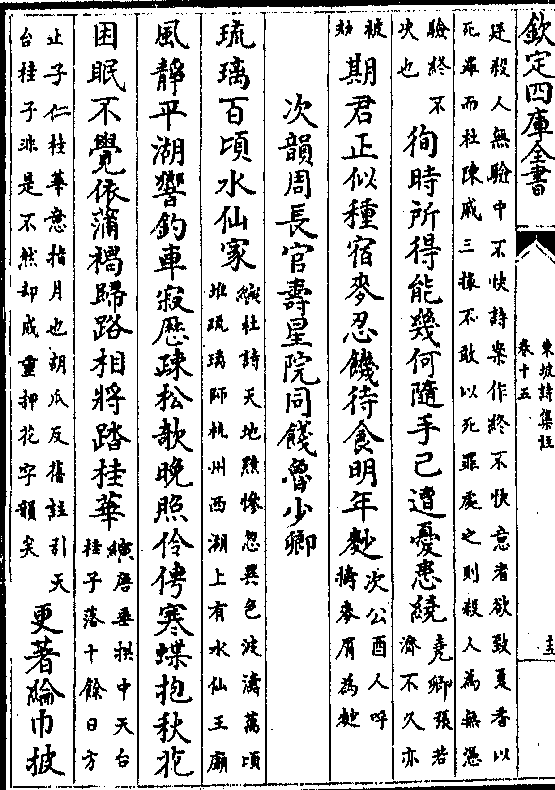 欽定四庫全書
東坡詩集註
卷十五
廷殺人無驗中不快詩案作終不快意者欲致夏香以
死源而杜陳戚三掾不敢以死罪處之則殺人為無憑
驗終不
次也
徇時所得能幾何隨手已遭憂患繞
堯卿張若
濟不久亦
被
劾
期君正似種宿麥忍饑待食明年麨
次公酉人呼
擣麥屑為麨
次韻周長官壽星院同餞魯少卿
琉璃百頃水仙家
縯杜詩天地黤慘忽異色波濤萬頃
堆琉璃師杭州西湖上有水仙王廟
風靜平湖響釣車寂歷疎松欹晚照伶俜寒蝶抱秋花
困眠不覺依蒲褐歸路相將踏桂華
縯唐垂拱中天台
桂子落十餘日方
止子仁桂華意指月也胡瓜反舊註引天
台桂子非是不然却成重押花字韻矣
更著綸巾披